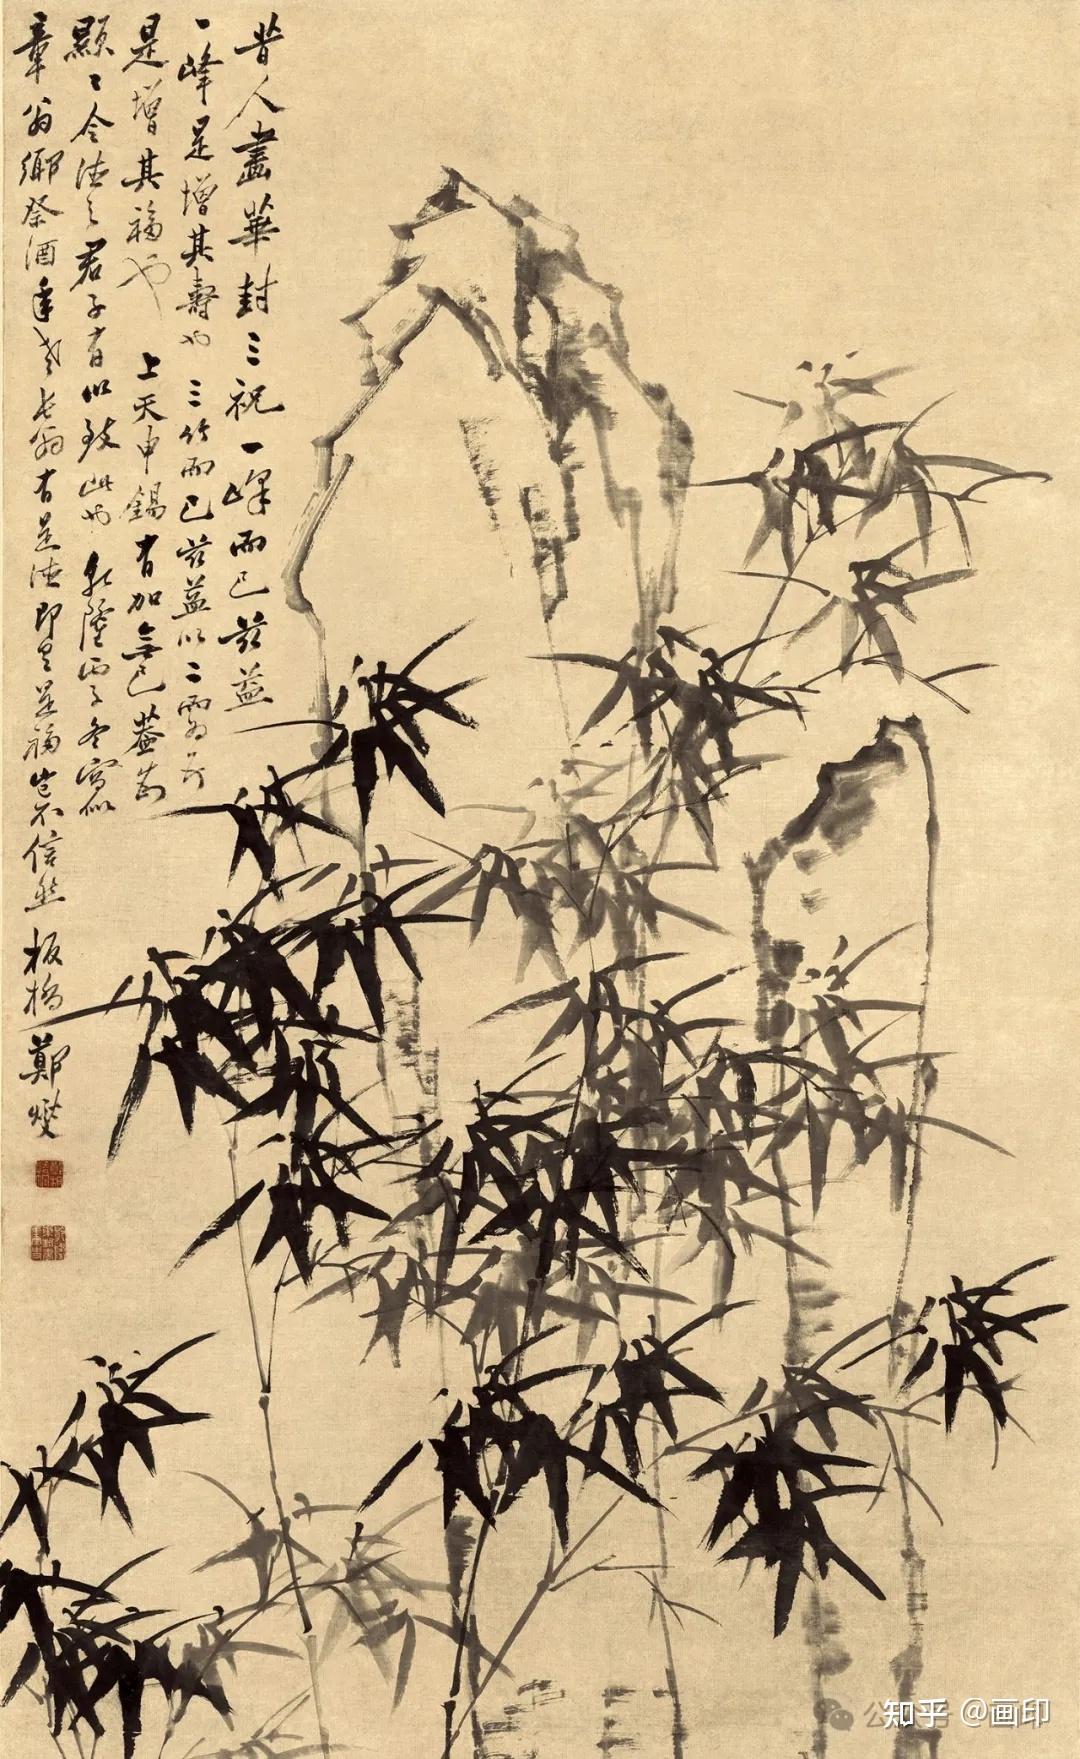 昔人畫華封三祝一峰而已茲益
一峰是增其壽也三竹而已茲益以二
是增其福也上天申錫有加無已
顯〻令德之君子有以致此也乾隆丙子冬寫似
章翁鄉祭酒年老長翁有是德即是福豈不信然板橋鄭燮
知乎 @画印